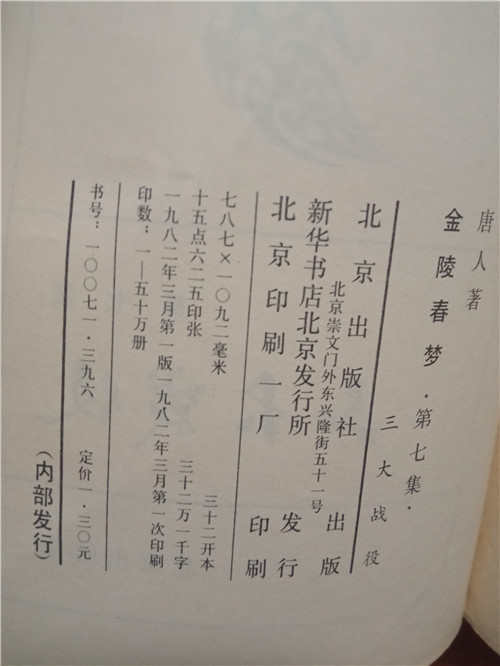 唐人著
金陵春梦·第七集·
三大战役
北京出版社 出版
北京崇文门外东兴隆街五十一号
新华书店北京发行所 发行
北京印刷一厂 印刷
七八七×一〇九二毫米 三十二开本
十五点六二五印张 三十二万一千字
一九八二年三月第一版一九八二年三月第一次印刷
印数：一—五十万册
书号：一〇〇七一·三九六 定价一·三〇元
（内部发行）